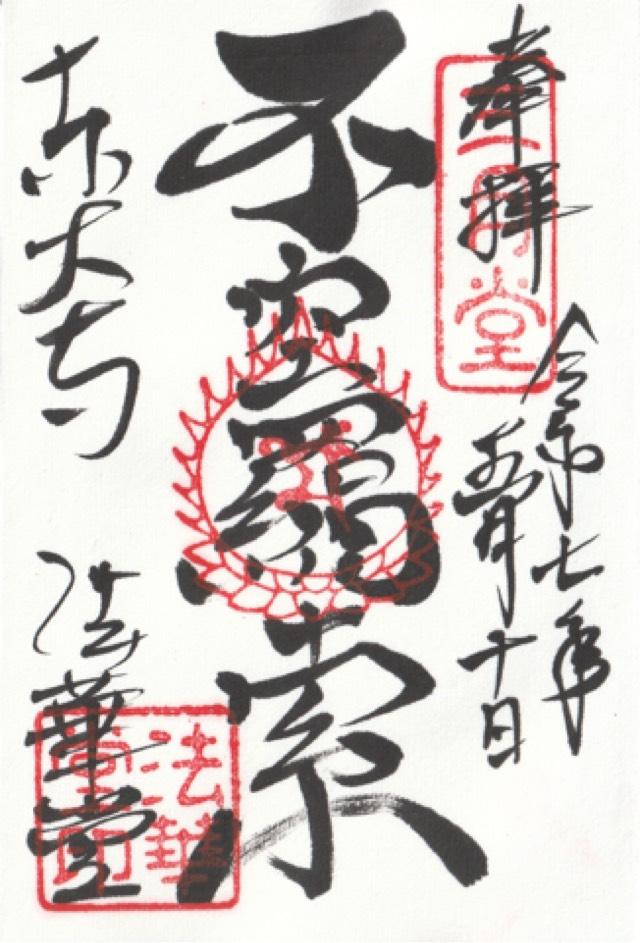 奉拝
三月堂
令和七年
五月十日
不空羂索
東大寺
法華堂
法華
堂印